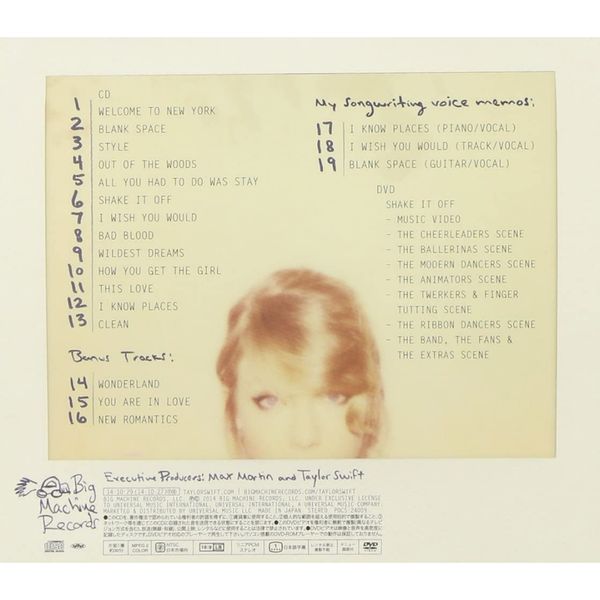 CD
1 WELCOME TO NEW YORK
2 BLANK SPACE
3 STYLE
4 OUT OF THE WOODS
5 ALL YOU HAD TO DO WAS STAY
6 SHAKE IT OFF
7 I WISH YOU WOULD
8 BAD BLOOD
9 WILDEST DREAMS
10 HOW YOU GET THE GIRL
11 THIS LOVE
12 I KNOW PLACES
13 CLEAN
Bonus Tracks:
14 WONDERLAND
15 YOU ARE IN LOVE
16 NEW ROMANTICS
My songwriting voice memos:
17 I KNOW PLACES (PIANO/VOCAL)
18 I WISH YOU WOULD (TRACK/VOCAL)
19 BLANK SPACE (GUITAR/VOCAL)
DVD
SHAKE IT OFF
- MUSIC VIDEO
- THE CHEERLEADERS SCENE
- THE BALLERINAS SCENE
- THE MODERN DANCERS SCENE
- THE ANIMATORS SCENE
- THE TWERKERS & FINGER
TUTTING SCENE
- THE RIBBON DANCERS SCENE
- THE BAND, THE FANS &
THE EXTRAS SCENE
Executive Producers: Max Martin and Taylor Swift
Big
Machine
Records
TAYLORSWIFT.COM | BIGMACHINERECORDS.COM/TAYLORSWIFT
BIG MACHINE RECORDS, LLC. ℗© 2014 BIG MACHINE RECORDS, LLC. UNDER EXCLUSIVE LICENSE
TO UNIVERSAL MUSIC INTERNATIONAL, UNIVERSAL INTERNATIONAL, A UNIVERSAL MUSIC COMPANY
MARKETED & DISTRIBUTED BY UNIVERSAL MUSIC LLC. MADE IN JAPAN STEREO
MPEG-2
COLOR
NTSC
日本市場向
リニアPCM
ステレオ
日本語字幕
DVD